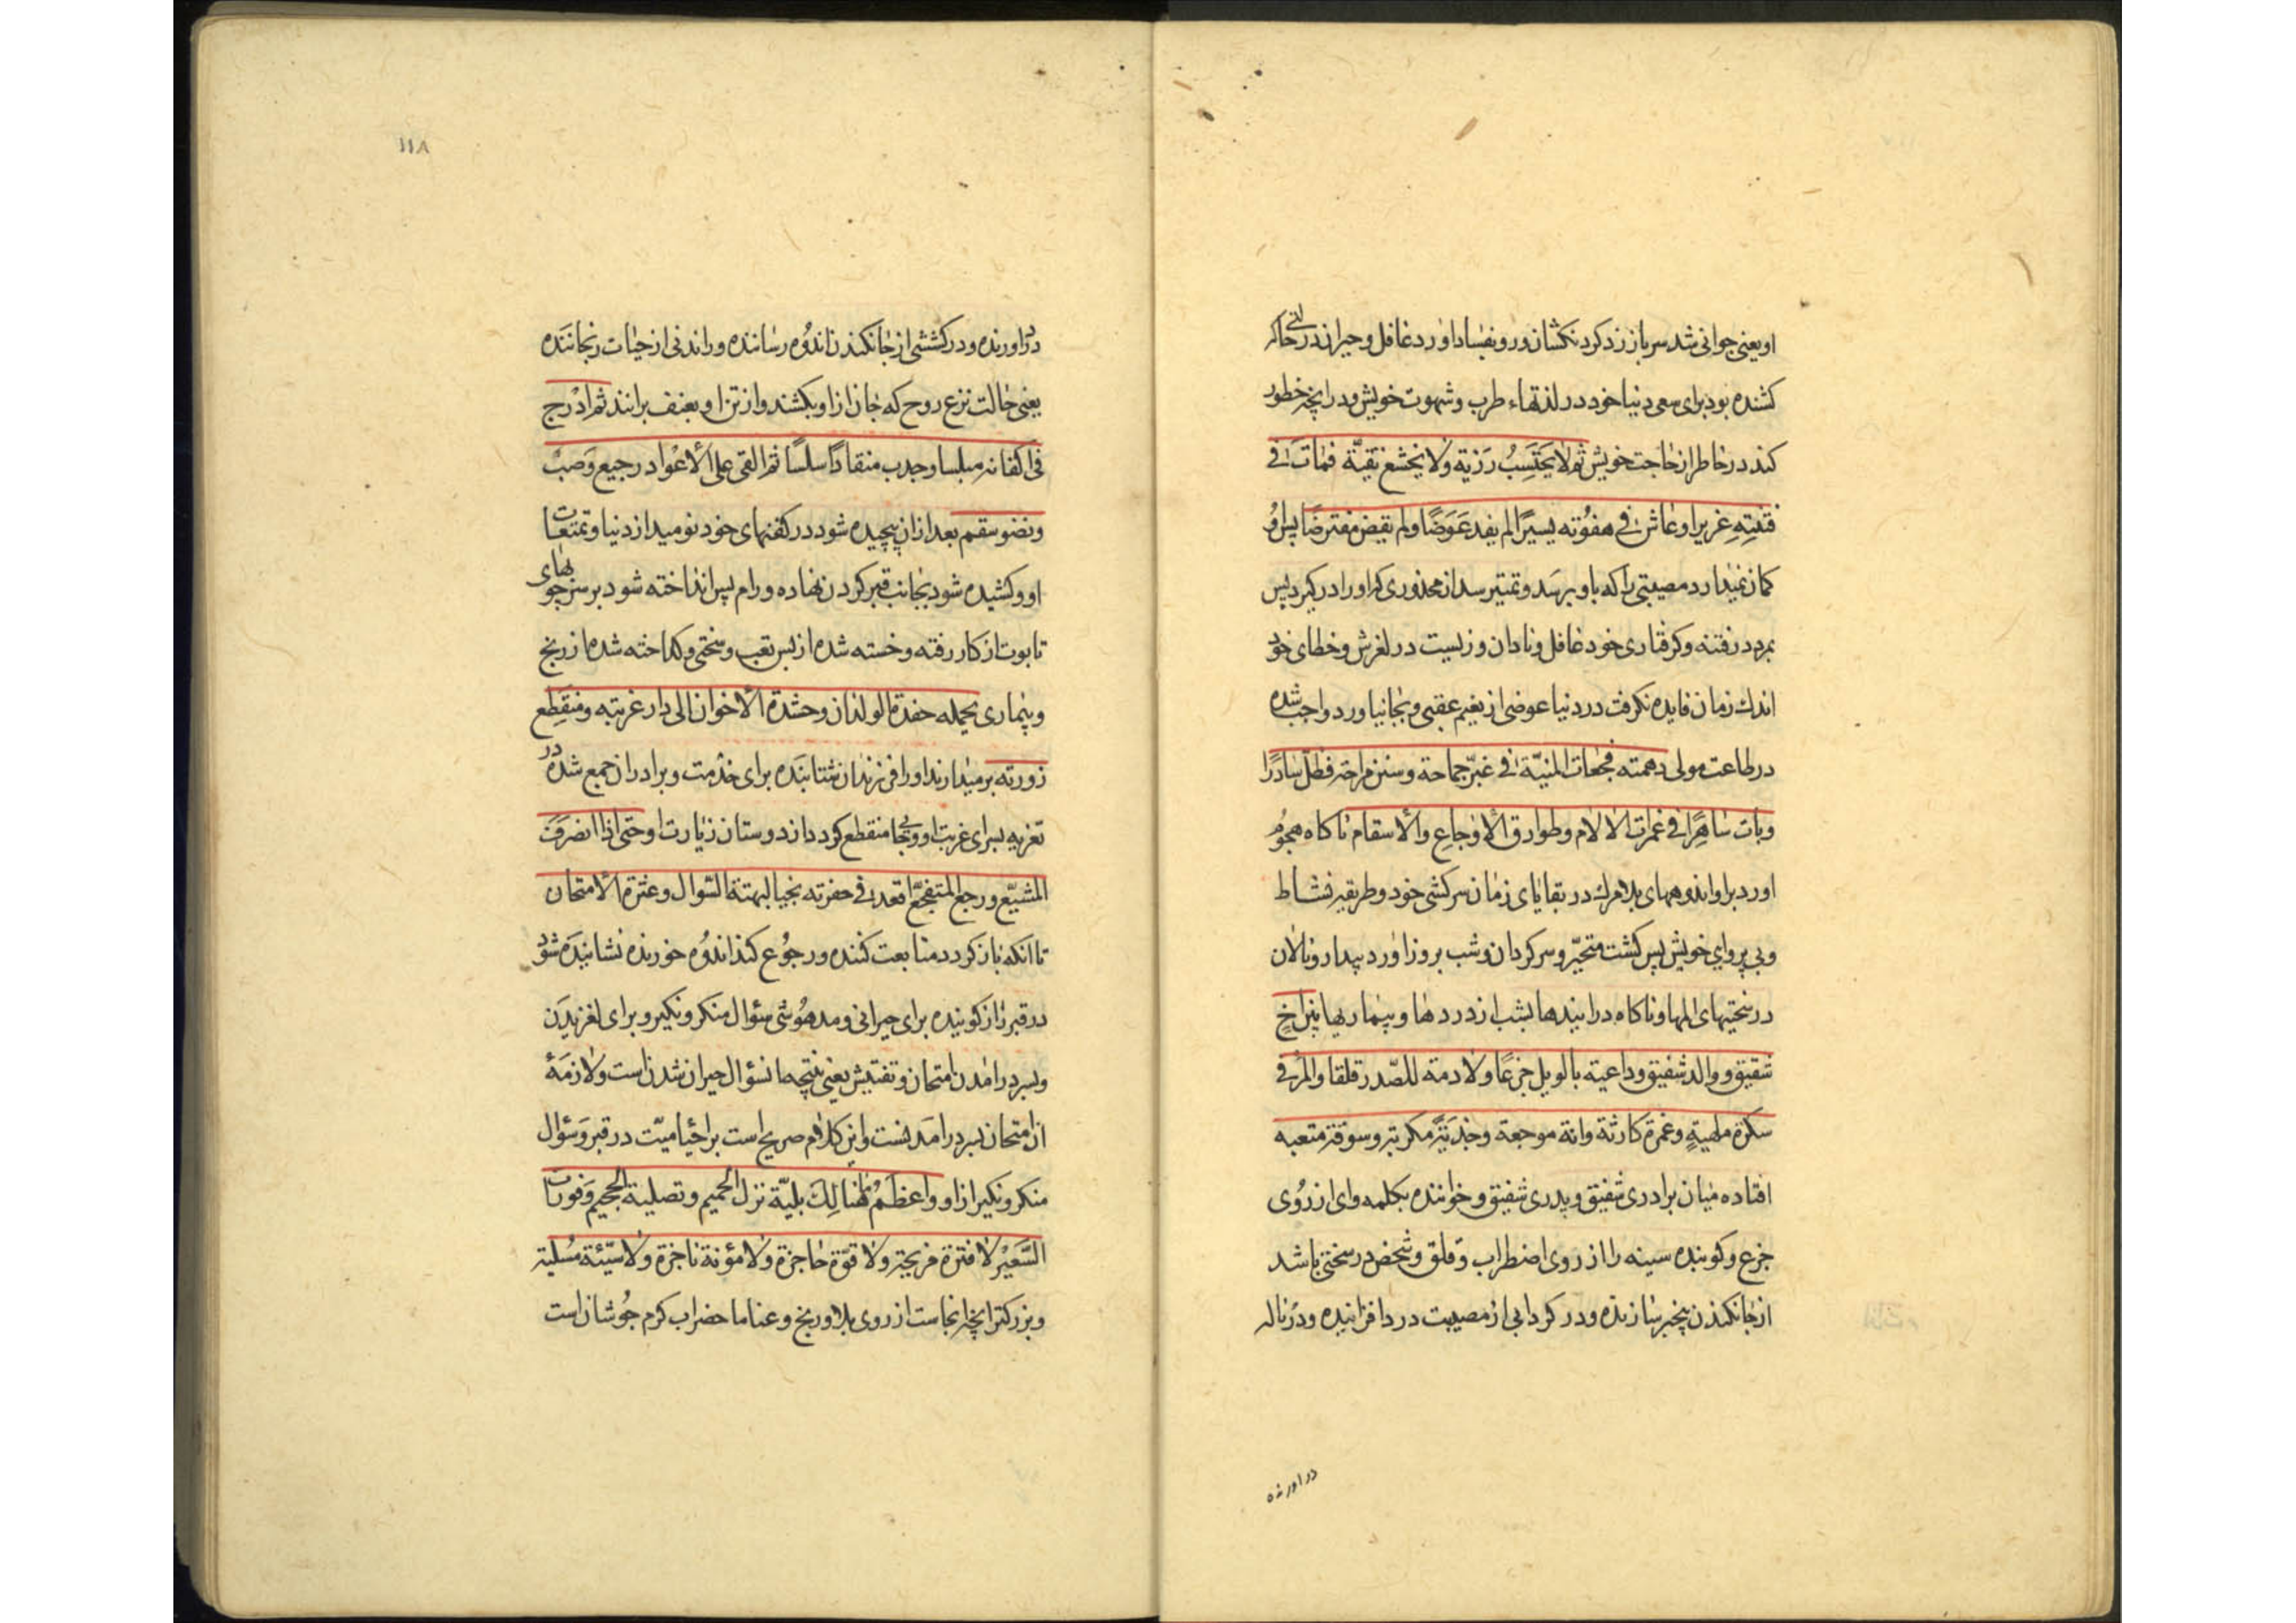 او یعنی جوانی شد سرباز زد کردنکشان و رو بفساد اورد غافل و حیران در حالتی که
کشنده بود برای سعی دنیا خود در لذتهاء طرب و شهوت خویش و در انچه خطور
کند در خاطر از حاجت خویش ثم لا یحتسب رزیة ولا یخشع تقیّة فمات فی
فتنتِهِ غریرا و عاش فی هفوته یسیرًا لم یفد عَوَضًا ولم یقض مفترضًا پس او
کمان نمیدارد مصیبتی را که باو برسَد و نمیترسد از محذوری که او را در کیرد پس
بمرد در فتنه و کرفتاری خود غافل و نادان و زیست در لغزش و خطای خود
اندك زمان فایده نکرفت در دنیا عوضی از نعیم عقبی و بجا نیاورد واجب شده
در طاعت مولی دهمته فجعات المنیّة فی غبّر جماحة و سنن مراحه فظلّ سادرًا
و بات ساهِرًا فی غمرات الالام و طوارق الاوجاع والاسقام ناکاه هجُوم
اورد بر او اندوههای بلا مرك در بقایای زمان سرکشی خود و طریقه نشاط
و بی پروای خویش پس کشت متحیّر و سرکردان و شب بروز اورد بیدار و نالان
در سختیهای المها و ناکاه در ایندها بشب از دردها و بیماریها بین اخٍ
شقیق و والد شفیق و داعیة بالویل جزعًا ولادمة للصّدر قلقا والمرُ فی
سکرة ملهیةٍ و غمرة کارثة وانة موجعة و جذبَةٍ مکربة و سوقة متعبه
افتاده میان برادری شفیق و پدری شفیق و خواننده بکلمه وای از رُوی
جزع و کوبنده سینه را از روی اضطراب و قلق و شخص در سختی باشد
از جانکندن بیخبر سازنده و در کردابی از مصیبت در دافزاینده و در ناله
در اورنده
۱۱۸
در اورنده و در کششی از جانکندن اندُوه رساننده و راندنی از حیات رنجاننَده
یعنی حالت نزع روح که جان از او بکشند و از تن او بعنف برانند ثم ادْرج
فی اکفانه مبلسا و جذب منقادًا سلسًا ثم القی علی الاعْواد رجیع وَصبٍ
و نضو سقم بعد از ان پیچیده شود در کفنهای خود نومید از دنیا و تمتعات
او و کشیده شود بجانب قبر کردن نهاده و رام پس انداخته شود بر سر چوبهای
تابوت از کار رفته و خسته شده از بس تعب و سختی و کداخته شده از رنج
و بیماری تحمله حفدة الولدان و حشدة الاخوان الی دار غربته و منقطِع
زورته بر میدارند او را فرزندان شتابنَده برای خدمت و برادران جمع شده در
تعزیه بسرای غربت او و بجای منقطع کردد از دوستان زیارت او حتی اذا انصرفَ
المُشیّع و رجع المتفجّع اقعد فی حفرته نجیا لبهتة السّوال و عثرة الامتحان
تا انکه باز کردد متابعت کننده و رجُوع کند اندُوه خورنده نشانیدَه شود
در قبر راز کوینده برای حیرانی و مدهُوشی سئوال منکر و نکیر و برای لغزیدَن
و بسر درامدن امتحان و تفتیش یعنی نتیجه ان سئوال حیران شدن است و لازمَهٔ
ان امتحان بسر درامَدنست و این کلام صریح است بر احیا میّت در قبر و سئوال
منکر و نکیر از او و اعظمُ ما هُنالِكَ بلیّة نزل الحمیم و تصلیة الجحیم وَ فورات
السَّعیْر لا فترة مریحة و لا قوّة حاجزة و لا مؤتة ناجزة و لا سّئیة مُسلیة
و بزرکتر انچه انجاست از روی بلا و رنج و عنا ما حضراب کرم جُوشان است